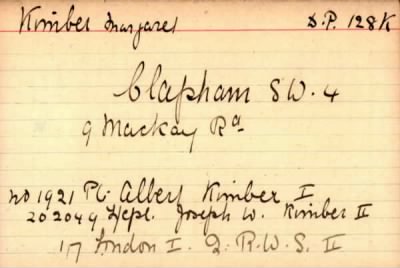 Kimber Margaret D.P. 128K
Clapham SW. 4
9 Mackay Rd
No 1921 Pt. Albert Kimber I
202049 Joseph W. Kimber II
17 London I. Q. R. W. S. II